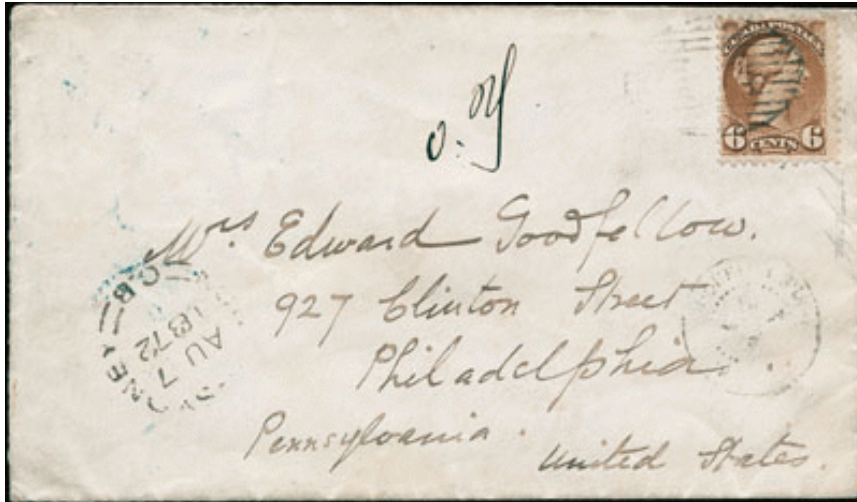 CANADA POSTAGE
6 CENTS 6
Mrs Edward Goodfellow.
927 Clinton Street
Philadelphia.
Pennsylvania.
United States.
SYDNEY C.B.
AU 7
1872